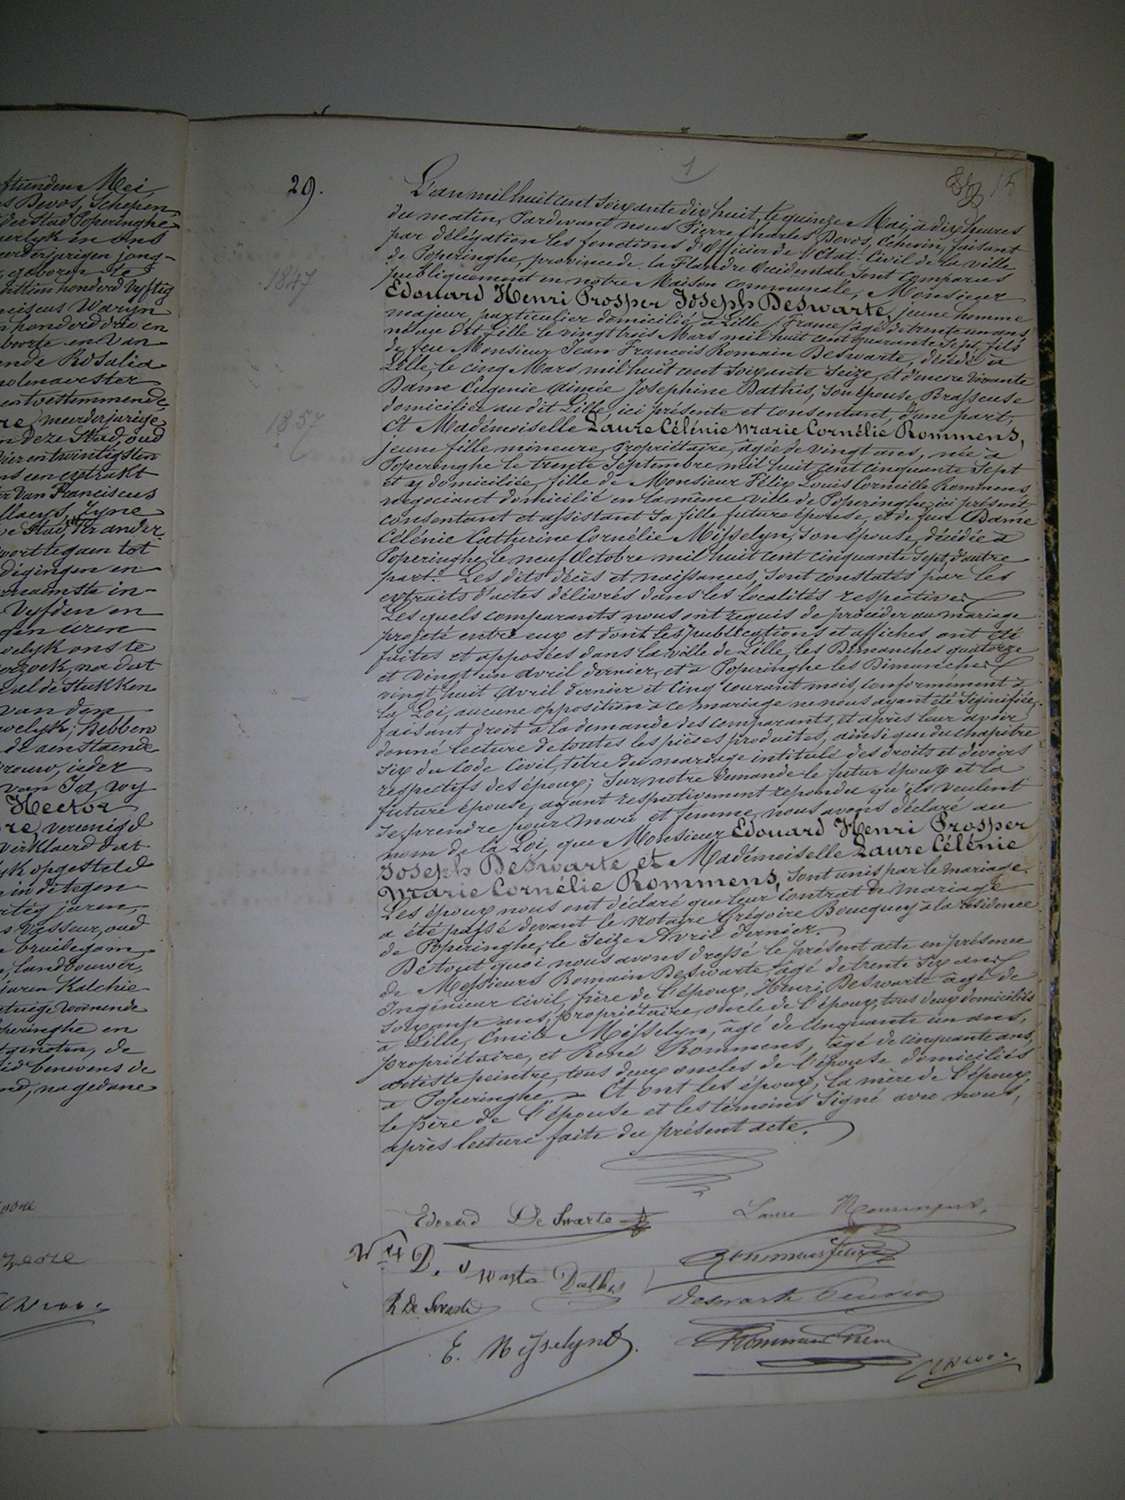 ftienden Mei
s Devos, Schepen
der Stad Poperinghe
in Ans
jong-
geboren te
honderd vyftig
ciscus Waryn
honderd drie en
van
Rosalia
re, meerderjarige
in deze Stad, oud
vier en twintigsten
een extrakt
er van Franciscus
tot
dégingen en
in-
vyfden en
onste
na dat
Stukken
van den
hebben
de aenstaende
vrouw, ieder
van Ja, wy
Hector
re, vereenigd
verklaerd dat
opgesteld
in de tegen-
jaren,
s Vasseur, oud
bruidegom
landbouwer,
jaren Katchie
woonende
Poperinghe en
de
benevens de
nagedane
1
15
29.
1847
1857
L'an mil huit cent soixante dix huit, le quinze Mai, à dix heures
du matin, Pardevant nous Pierre Charles Devos, Echevin, faisant
par délégation les fonctions d'Officier de l'Etat-Civil de la ville
de Poperinghe, province de la Flandre Occidentale sont comparus
publiquement en notre Maison communale, Monsieur
Edouard Henri Prosper Joseph Deswarte, jeune homme
majeur, particulier domicilié à Lille, France, âgé de trente un ans,
né au dit Lille le vingt trois Mars mil huit cent quarante sept, fils
de feu Monsieur Jean François Romain Deswarte, décédé à
Lille, le cinq Mars mil huit cent soixante seize, et d'encore vivante
Dame Eugénie Aimée Joséphine Dathis, son épouse Brasseuse
domiciliée au dit Lille, ici présente et consentant, d'une part;
Et Mademoiselle Laure Célénie Marie Cornélie Rommens,
jeune fille mineure, propriétaire, âgée de vingt ans, née à
Poperinghe le trente Septembre mil huit cent cinquante sept
et y domiciliée, fille de Monsieur Félix Louis Corneille Rommens
négociant domicilié en la même ville de Poperinghe, ici présent,
consentant et assistant sa fille future épouse, et de feue Dame
Célénie Catherine Cornélie Misselyn, son épouse, décédée à
Poperinghe, le neuf Octobre mil huit cent cinquante sept, d'autre
part. Les dits décès et naissances, sont constatés par les
extraits d'actes délivrés dans les localités respectives.
Les quels comparants nous ont requis de procéder au mariage
projeté entre eux et dont les publications et affiches ont été
faites et apposées dans la ville de Lille, les Dimanches quatorze
et vingt un Avril dernier, et à Poperinghe les Dimanches
vingt huit Avril dernier et cinq courant mois, conformément à
la Loi, aucune opposition à ce mariage ne nous ayant été signifiée,
faisant droit à la demande des comparants, et après leur avoir
donné lecture de toutes les pièces produites, ainsi que du chapitre
six du Code Civil, titre du mariage intitulé des droits et devoirs
respectifs des époux; Sur notre demande le futur époux et la
future épouse, ayant respectivement répondu qu'ils veulent
se prendre pour mari et femme, nous avons déclaré au
nom de la Loi, que Monsieur Edouard Henri Prosper
Joseph Deswarte et Mademoiselle Laure Célénie
Marie Cornélie Rommens, sont unis par le mariage.
Les époux nous ont déclaré que leur contrat de mariage
a été passé devant le notaire Grégoire Boucquey à la résidence
de Poperinghe, le seize Avril dernier.
De tout quoi nous avons dressé le présent acte en présence
de Messieurs Romain Deswarte, âgé de trente six ans,
Ingénieur civil, frère de l'époux, Henri Deswarte âgé de
soixante ans, propriétaire, oncle de l'époux, tous deux domiciliés
à Lille, Emile Misselyn, âgé de cinquante un ans,
propriétaire, et René Rommens, âgé de cinquante ans,
artiste peintre, tous deux oncles de l'épouse domiciliés
à Poperinghe. Et ont les époux, la mère de l'époux,
le père de l'épouse et les témoins signé avec nous,
après lecture faite du présent acte.
Edouard De Swarte
Laure Rommens
Vve De Swarte Dathis
Rommens
R De Swarte
Deswarte Henri
E. Misselyn
Rommens René